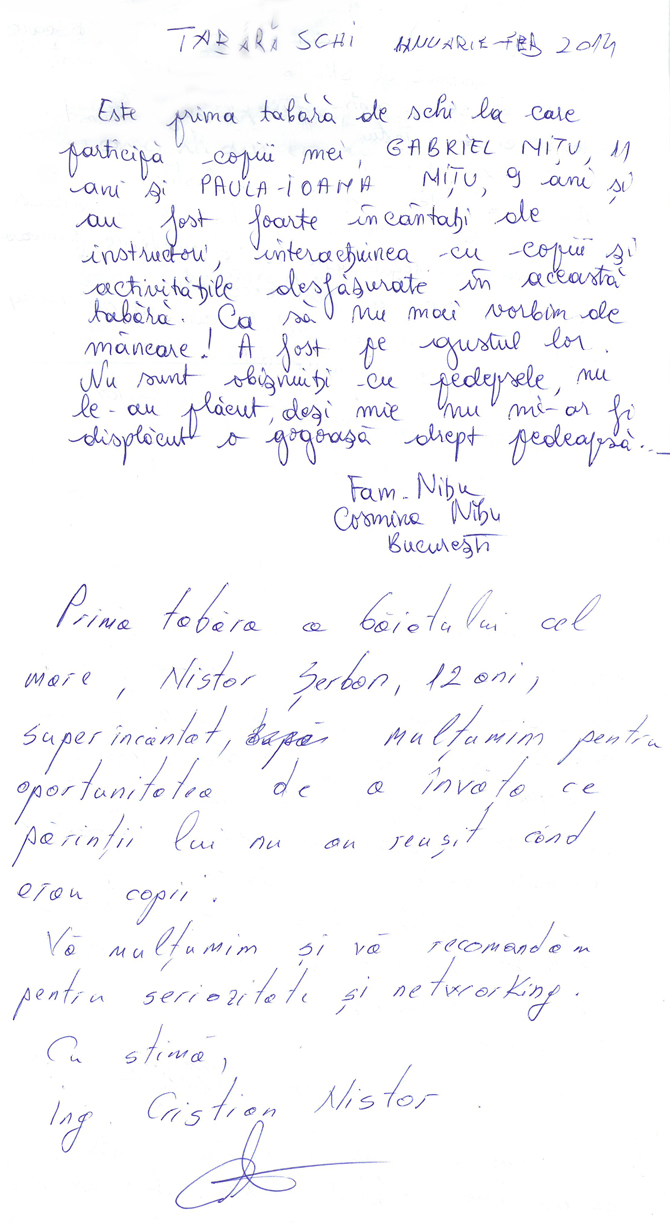 TABĂRĂ SCHI IANUARIE-FEB 2014
Este prima tabără de schi la care
participă copiii mei, GABRIEL NIȚU, 11
ani și PAULA-IOANA NIȚU, 9 ani și
au fost foarte încântați de
instructori, interacțiunea cu copiii și
activitățile desfășurate în această
tabără. Ca să nu mai vorbim de
mâncare! A fost pe gustul lor.
Nu sunt obișnuiți cu pedepsele, nu
le-au plăcut, deși mie nu mi-ar fi
displăcut o gogoașă drept pedeapsă...
Fam. Nițu
Cosmina Nițu
București
Prima tabăra a băiatului cel
mare, Nistor Șerban, 12 ani,
super încântat, mulțumim pentru
oportunitatea de a învăța ce
părinții lui nu au reușit când
erau copii.
Vă mulțumim și vă recomandăm
pentru seriozitate și networking.
Cu stimă,
Ing. Cristian Nistor.